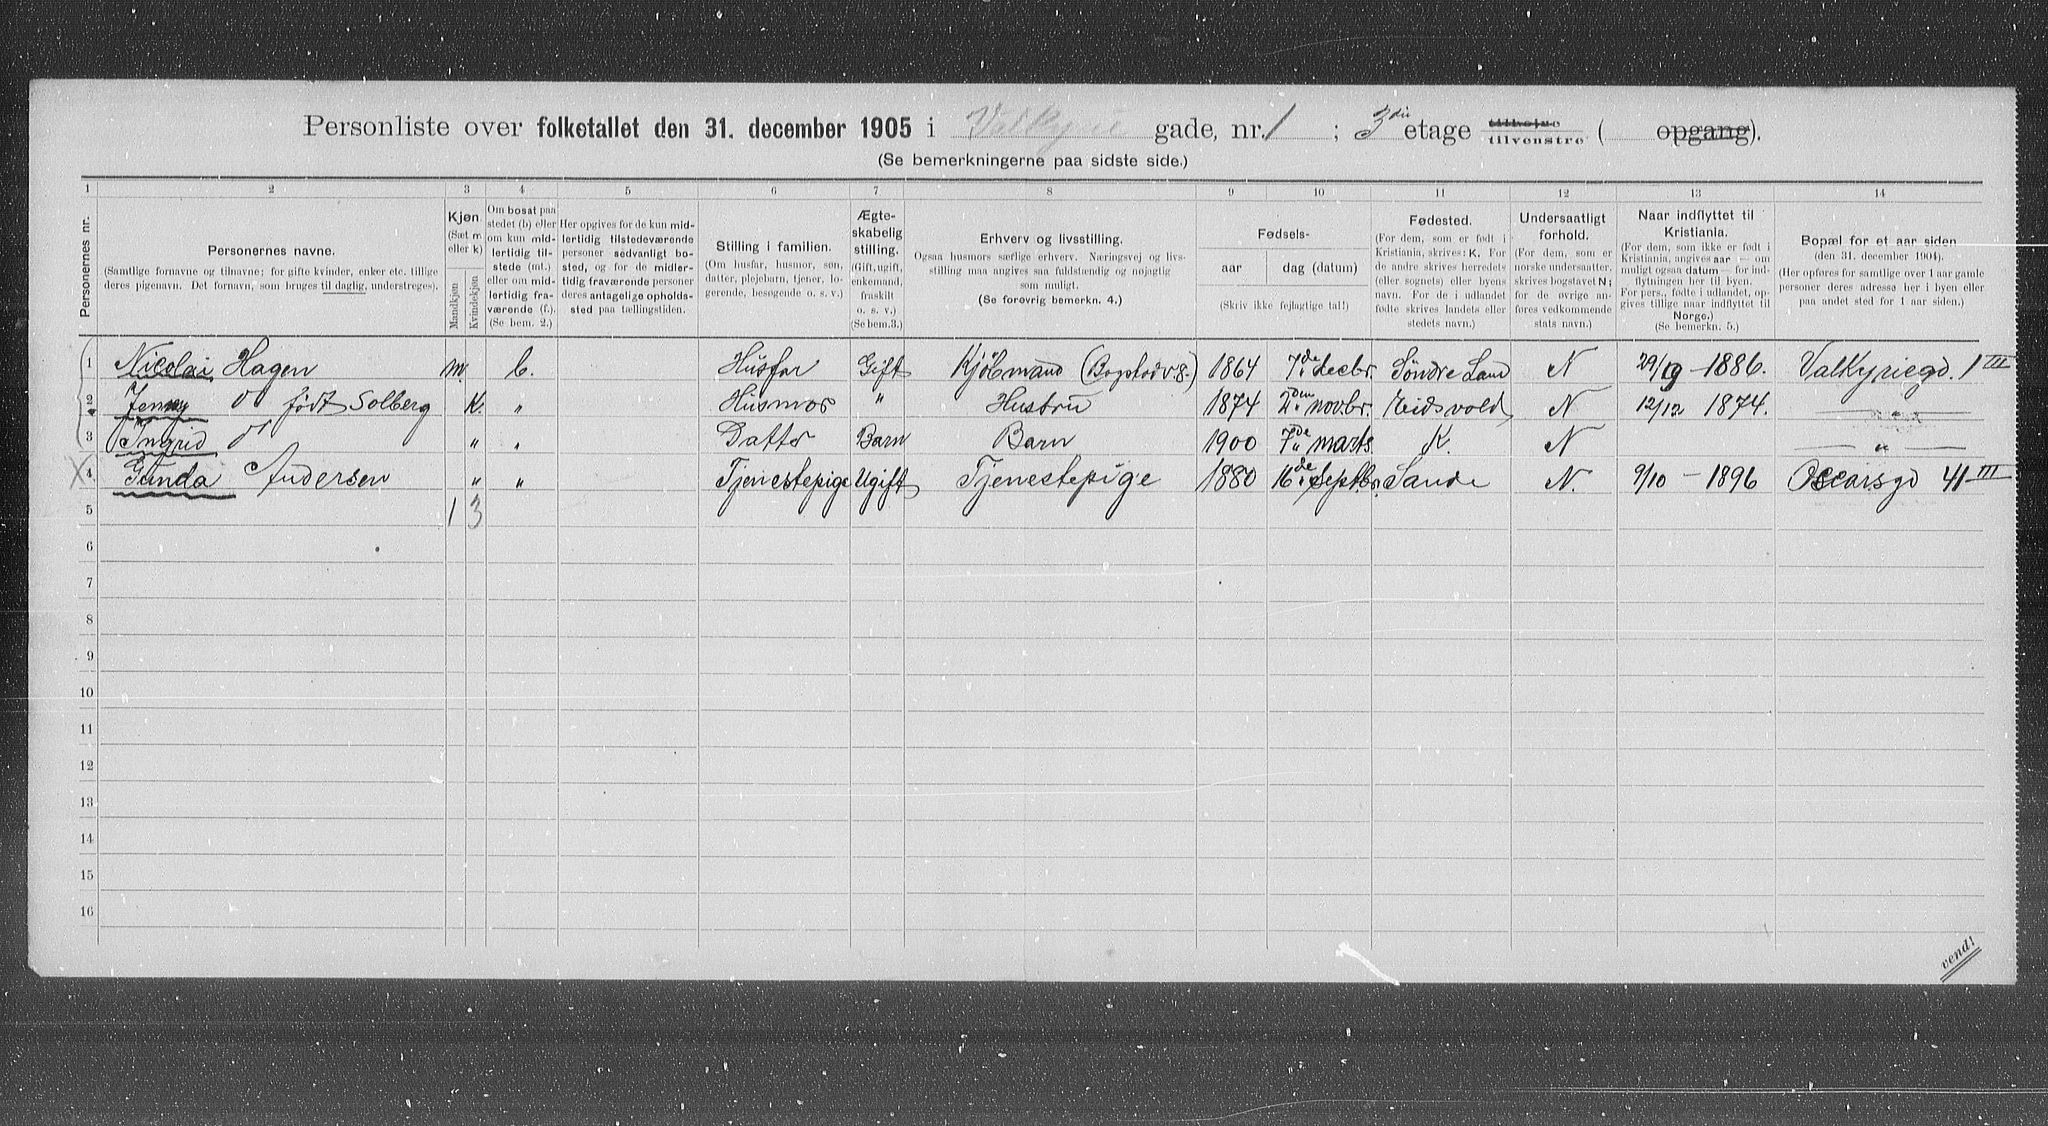 Personliste over folketallet den 31. december 1905 i Valkyrie gade, nr. 1 ; 3die etage tilhøire tilvenstre ( opgang).
(Se bemerkningerne paa sidste side.)
1 2 3 4 5 6 7 8 9 10 11 12 13 14
Personernes nr.
Personernes navne.
(Samtlige fornavne og tilnavne; for gifte kvinder, enker etc. tillige
deres pigenavn. Det fornavn, som bruges til daglig, understreges).
Kjøn.
(Sæt m
eller k)
Mandkjøn
Kvindekjøn
Om bosat paa
stedet (b) eller
om kun mid-
lertidig til-
stede (mt.)
eller om mid-
lertidig fra-
værende (f.).
(Se bem. 2.)
Her opgives for de kun mid-
lertidig tilstedeværende
personer sedvanlig bo-
sted, og for de midler-
tidig fraværende personer
deres antagelige opholds-
sted paa tællingstiden.
Stilling i familien.
(Om husfar, husmor, søn,
datter, plejebarn, tjener, lo-
gerende, besøgende o. s. v.)
Ægte-
skabelig
stilling.
(Gift, ugift,
enkemand,
fraskilt
o. s. v.)
(Se bem.3.)
Erhverv og livsstilling.
Ogsaa husmors særlige erhverv. Næringsvej og livs-
stilling maa angives saa fuldstændig og nøjagtig
som muligt.
(Se forøvrig bemerkn. 4.)
Fødsels-
aar dag (datum)
(Skriv ikke fejlagtige tal!)
Fødested.
(For dem, som er født i
Kristiania, skrives: K. For
de andre skrives herredets
(eller sognets) eller byens
navn. For de i udlandet
fødte skrives landets eller
stedets navn.)
Undersaatligt
forhold.
(For dem, som er
norske undersaatter,
skrives bogstavet N;
for de øvrige an-
føres vedkommende
stats navn.)
Naar indflyttet til
Kristiania.
(For dem, som ikke er født i
Kristiania, angives aar — om
muligt ogsaa datum — for ind-
flytningen her til byen.
For pers., fødte i udlandet, op-
gives tillige naar indflyttet til
Norge.)
(Se bemerkn. 5.)
Bopæl for et aar siden
(den 31. december 1904).
(Her opføres for samtlige over 1 aar gamle
personer deres adresse her i byen eller
paa andet sted for 1 aar siden.)
1 Nicolai Hagen m. b. Husfar Gift Kjøbmand (Bogstadv. 8.) 1864 7de decbr. Søndre Land N 29/9 - 1886. Valkyriegd. 1 III
2 Jenny do født Solberg K. " Husmor " Hustru 1874 2den novbr. Eidsvold N 12/12 1874. — " —
3 Ingrid do " " Datter Barn Barn 1900 7de marts. K. N — " —
X 4 Gunda Andersen " " Tjenestepige Ugift Tjenestepige 1880 16de Septbr. Sande N. 9/10 - 1896 Oscarsgd 41 III
5 1 3
6
7
8
9
10
11
12
13
14
15
16
vend!